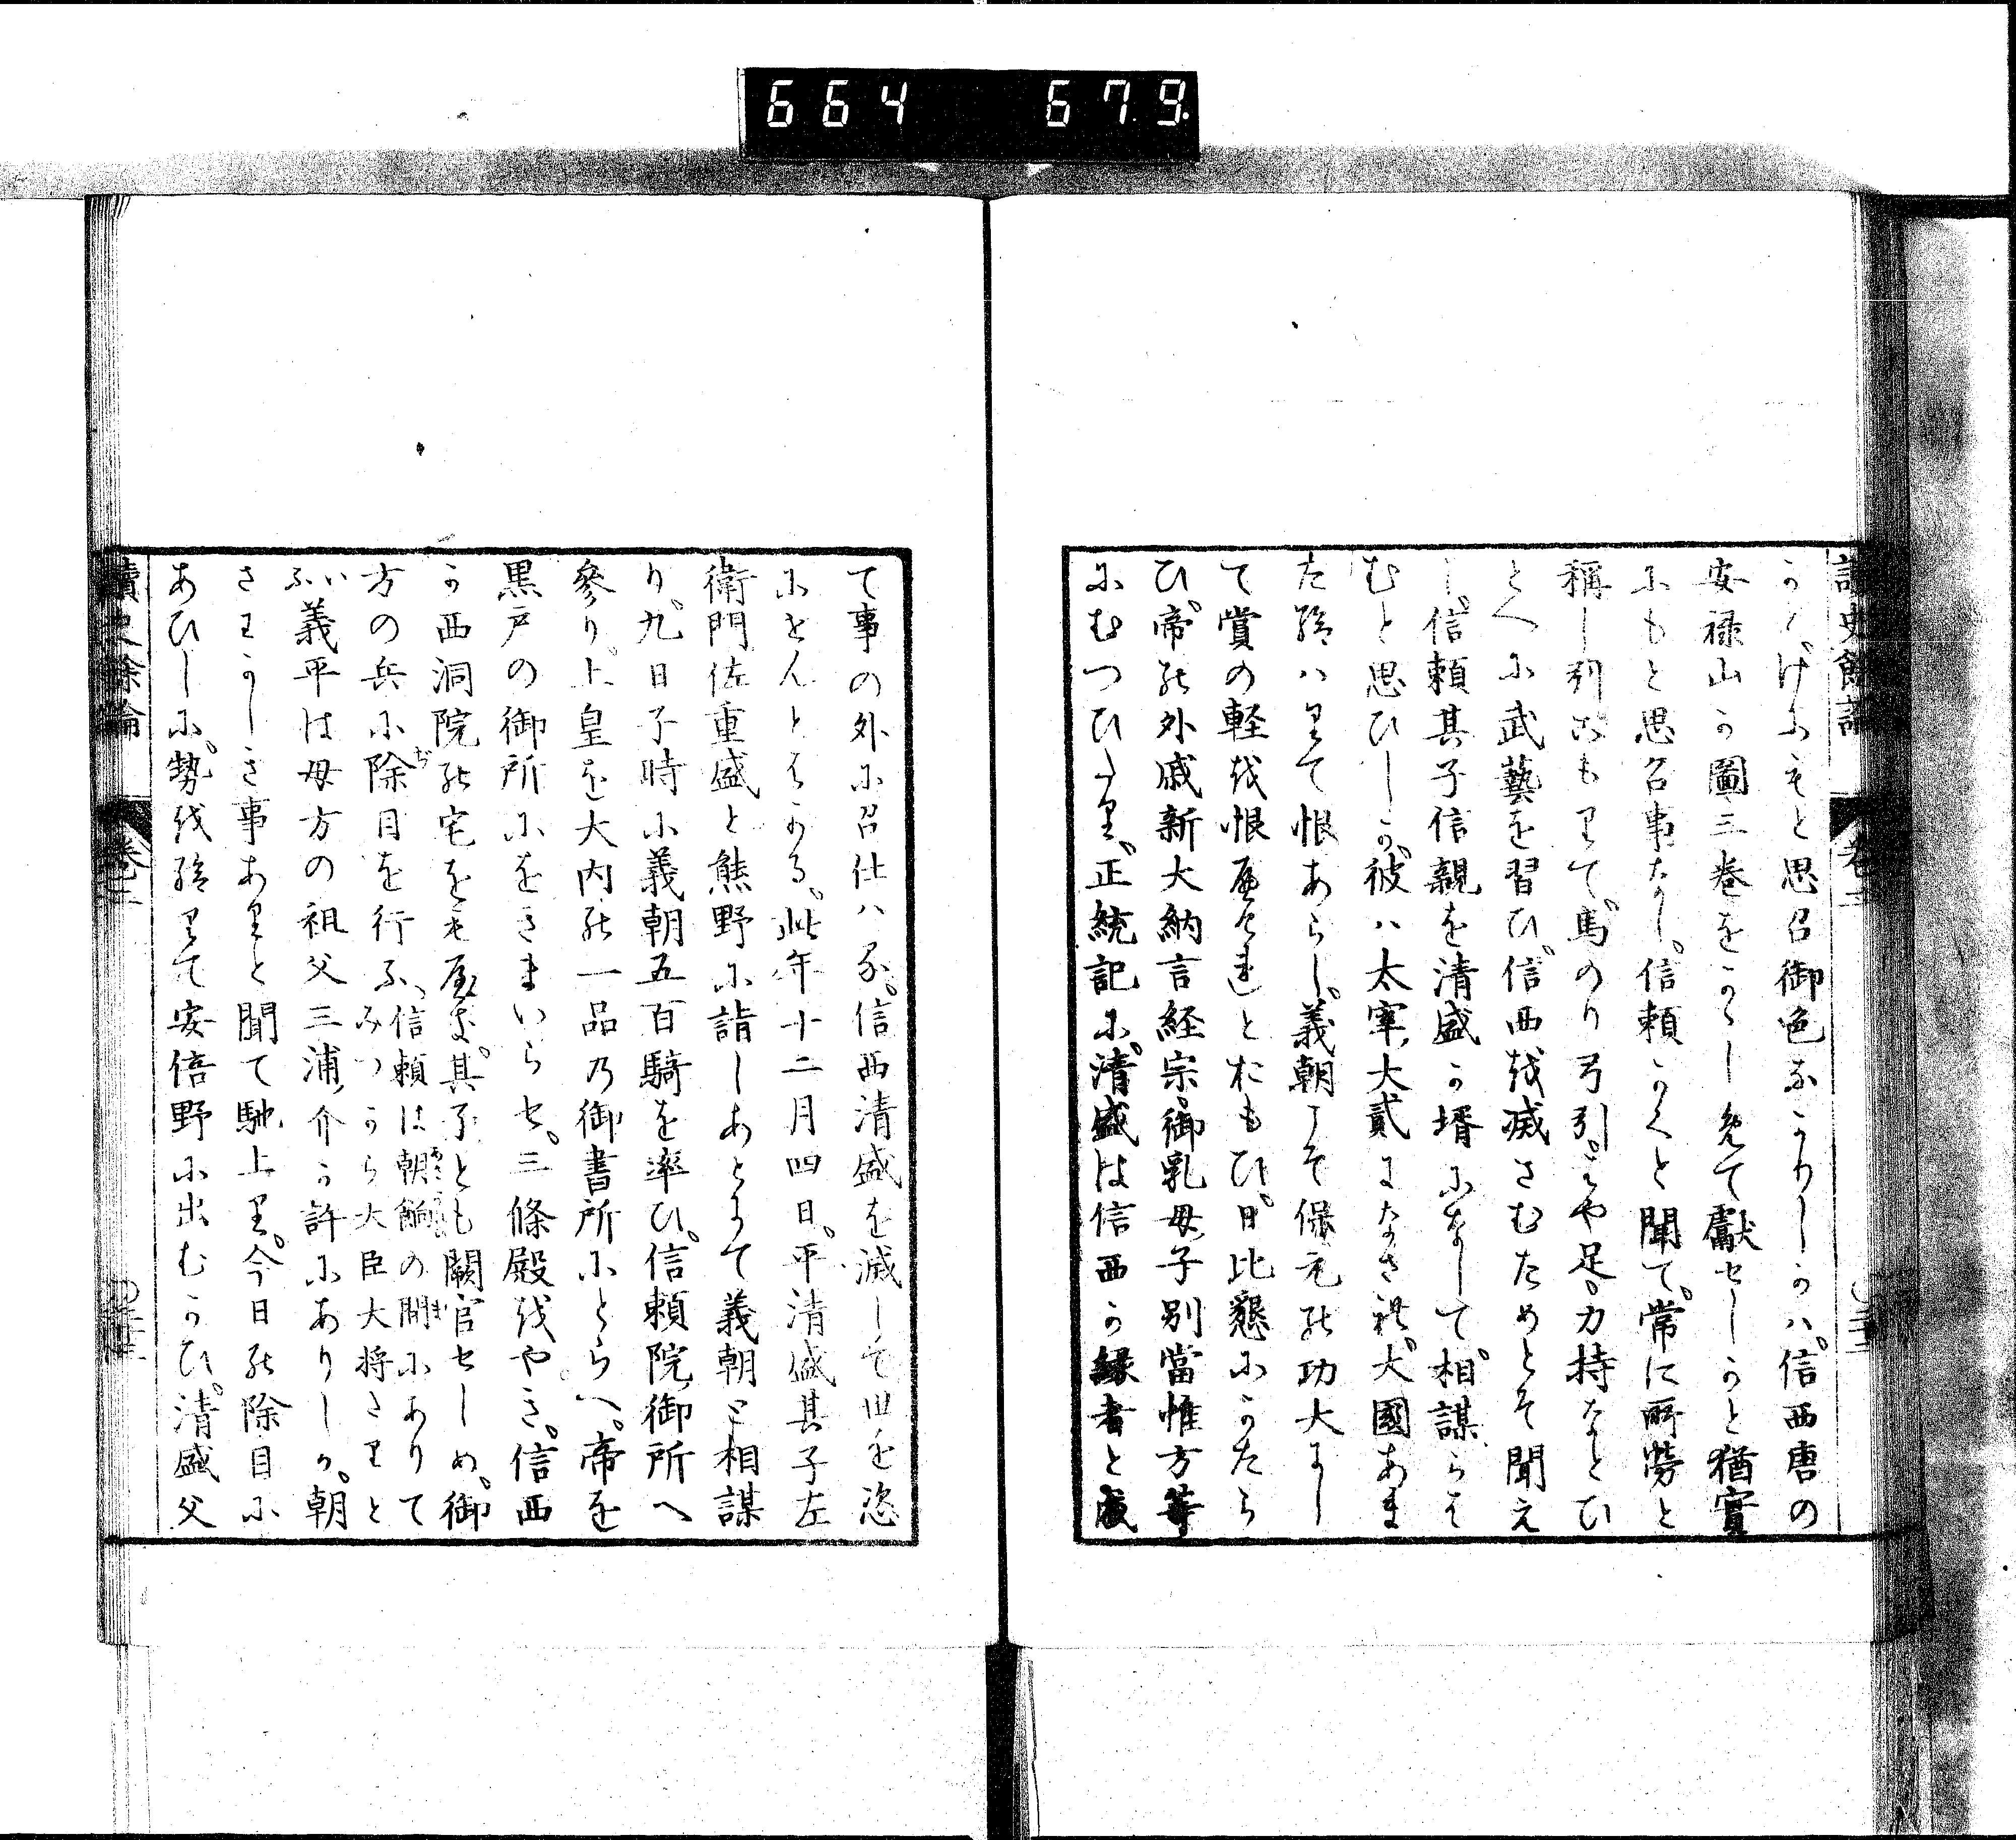 664 679
かば。げにもと思召御色なかりしかハ。信西唐の
安禄山か圖三巻をかゝしめて獻セしかと猶實
にもと思召事なし。信頼かくと聞て。常に所勞と
稱し引こもりて。馬のり弓引。はや足。力持なとひ
とへに武藝を習ひ。信西を滅さむためとそ聞え
し。信頼其子信親を清盛か壻になして。相謀らは
むと思ひしか。彼ハ太宰大貳になされ。大國あま
た給ハりて恨あらし。義朝こそ保元の功大にし
て賞の軽を恨べけれとおもひ。日比懇にかたら
ひ。帝の外戚新大納言経宗。御乳母子別當惟方等
にむつひけり。正統記に。清盛は信西か縁者と成
て事の外に召仕ハる。信西清盛を滅して世を恣
にせんとはかる。此年十二月四日。平清盛其子左
衛門佐重盛と熊野に詣しあとにて義朝と相謀
り。九日子時に義朝五百騎を率ひ。信頼院御所へ
參り。上皇を大内の一品乃御書所にとらへ。帝を
黒戸の御所にをきまいらセ。三條殿をやき。信西
か西洞院の宅をも屋き。其子とも闕官セしめ。御
方の兵に除目を行ふ。信頼は朝餉の間にありて
みつから大臣大将さりと
いふ義平は母方の祖父三浦介か許にありしか。朝
さわかしき事ありと聞て馳上り。今日の除目に
あひしに。勢を給りて安倍野に出むかひ。清盛父
讀史餘論 巻二